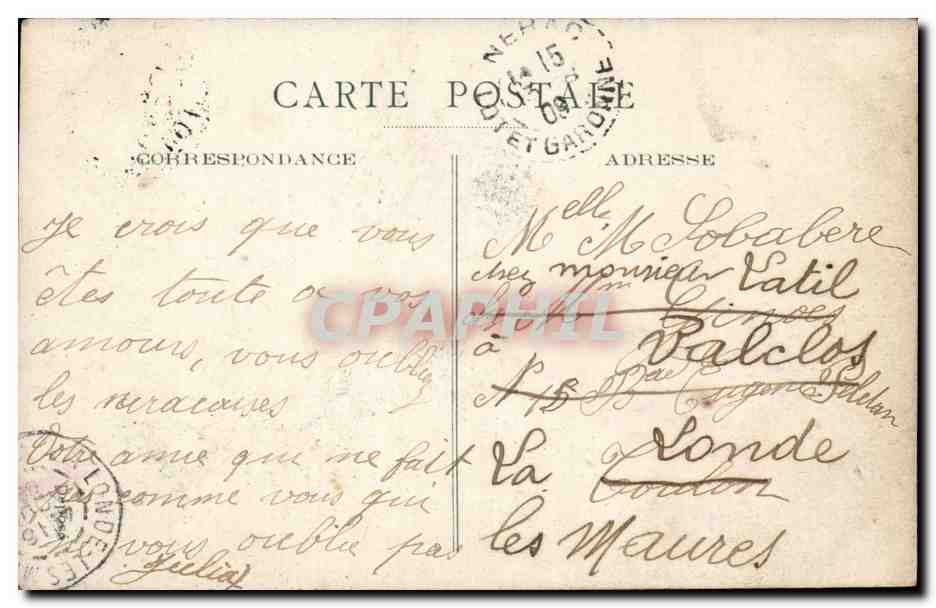 NERAC
15
09
LOT ET GARONNE
CARTE POSTALE
CORRESPONDANCE
ADRESSE
Je crois que vous
êtes toute a vos
amours, vous oubliez
les neracaises
Votre amie qui ne fait
pas comme vous qui
ne vous oublie pas
Julia
LA LONDE LES M
Melle M Lobabere
chez monsieur Latil
à Valclos
N 15 Bd Eugène Pelletan
La Londe
Toulon
les Maures
CPAPHIL